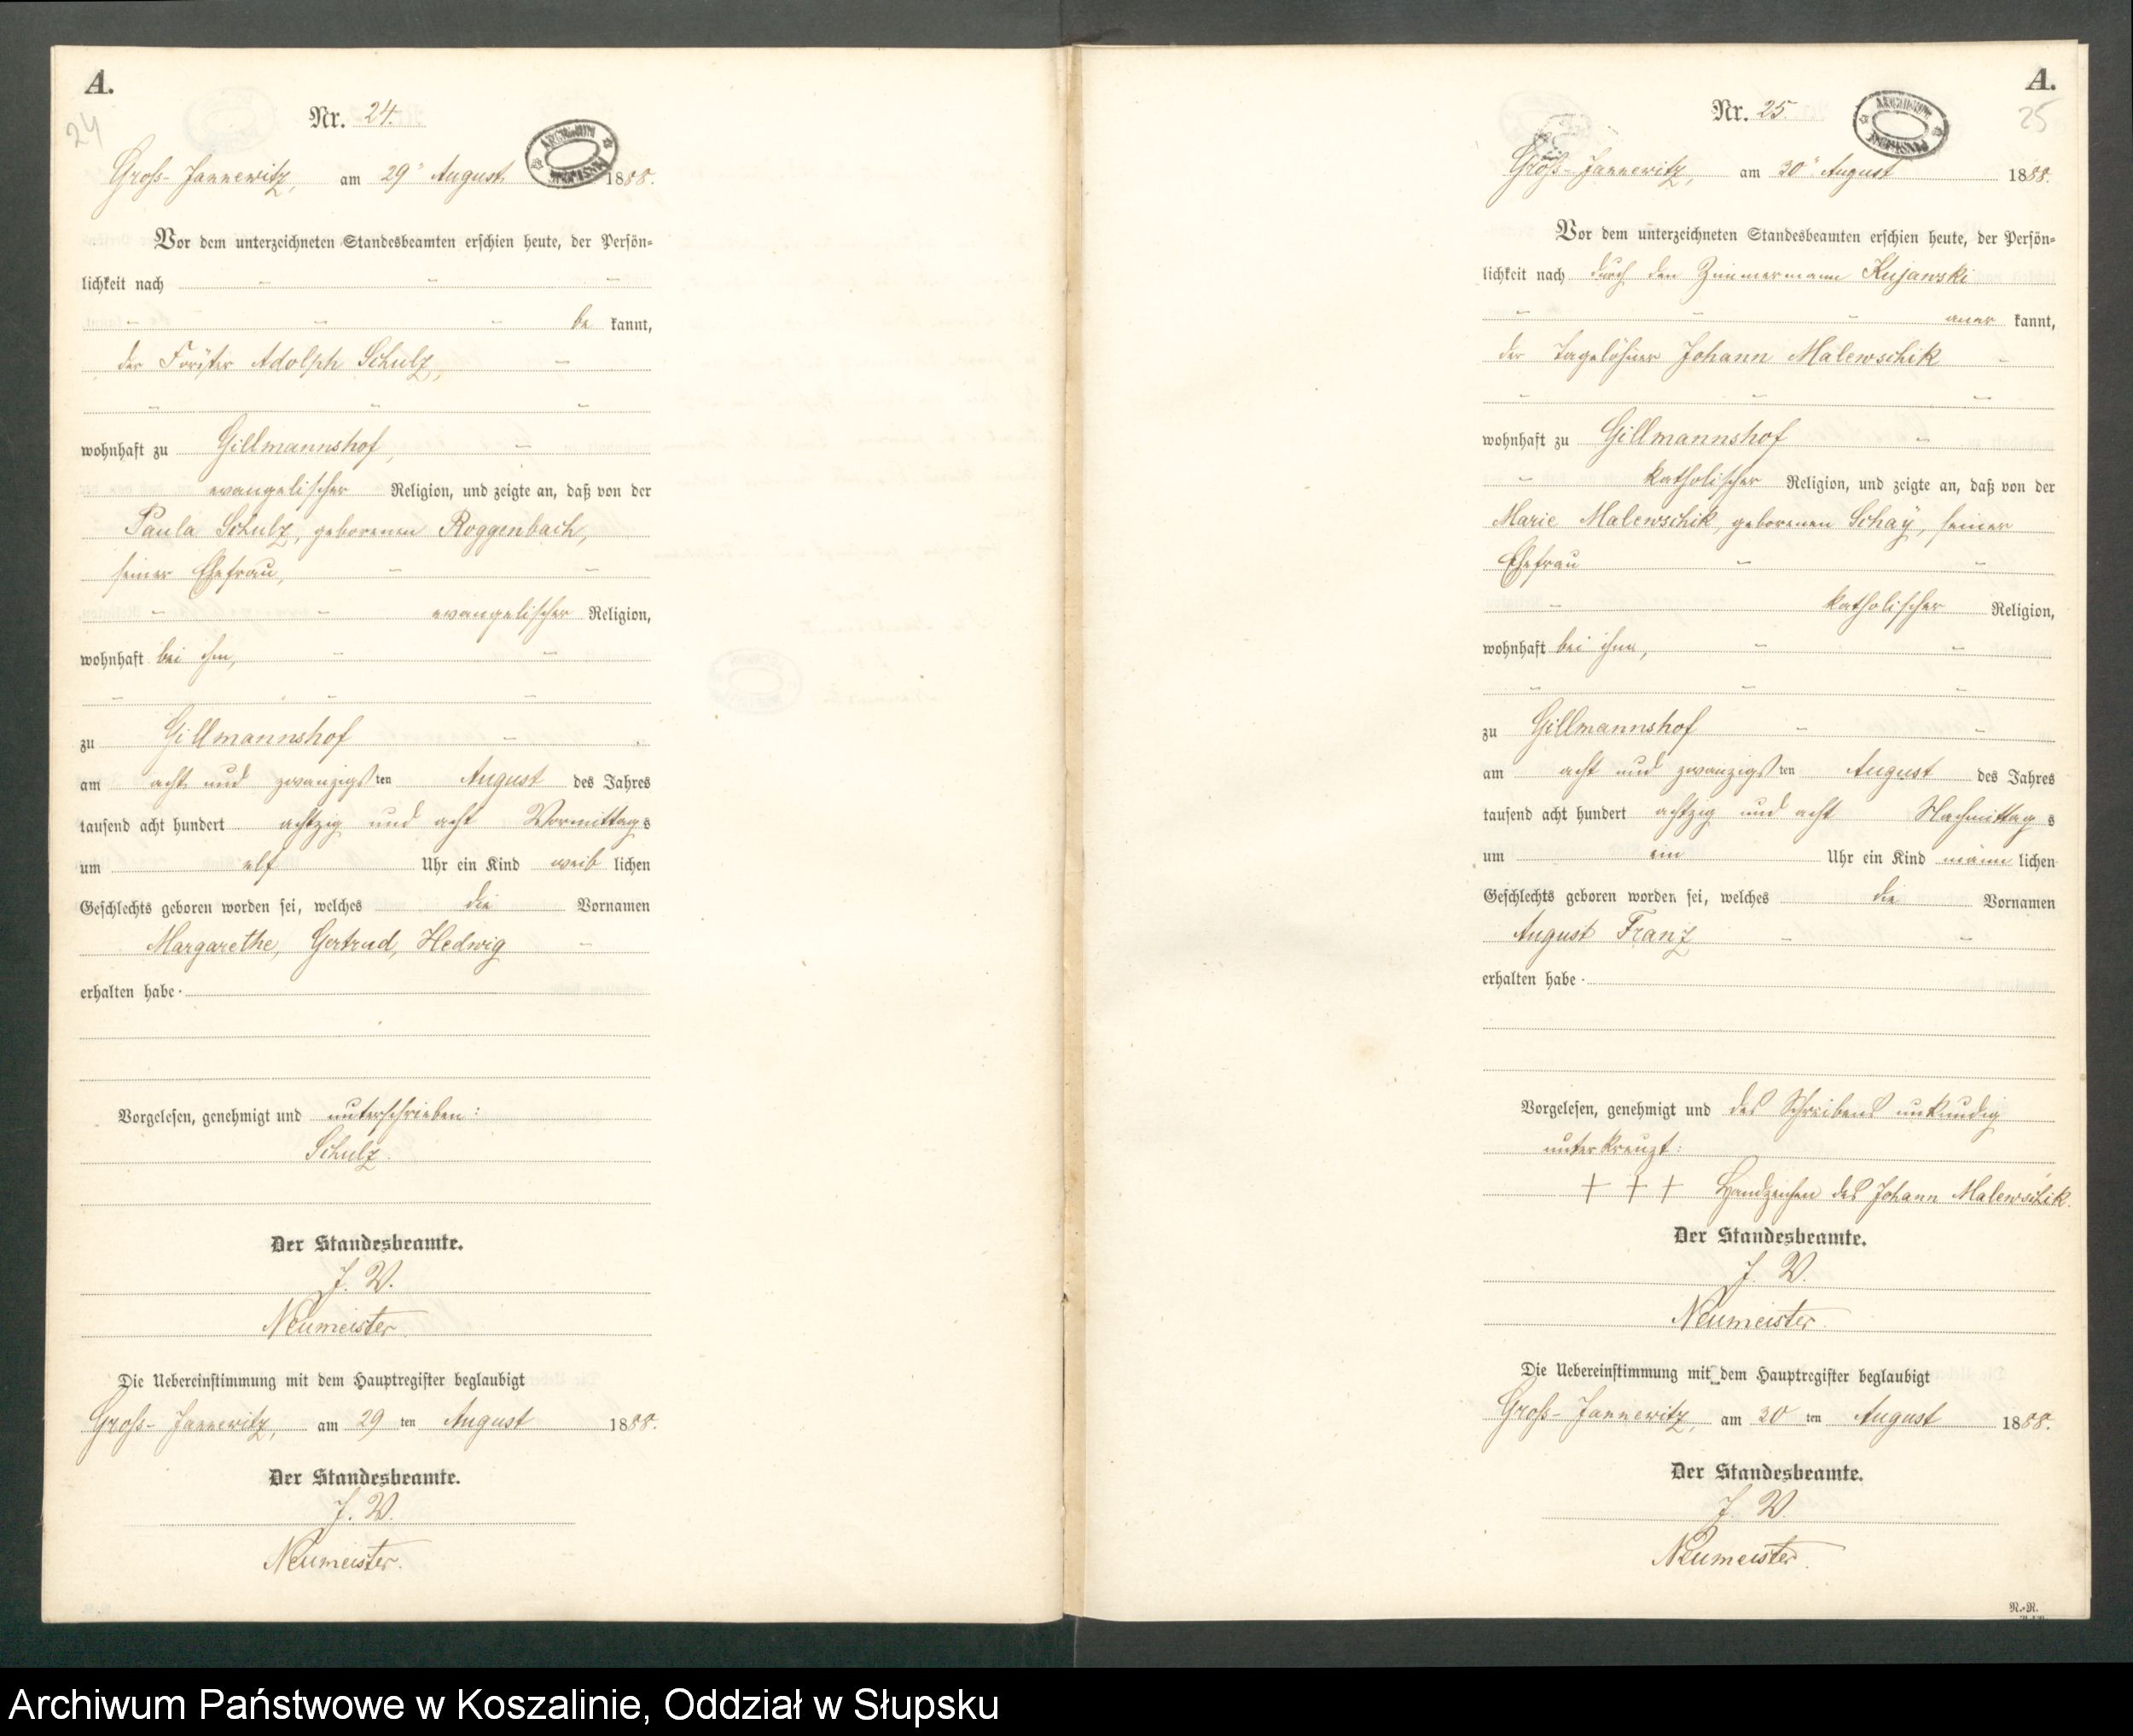 A.
24
Nr. 24.
ARCHIWUM PAŃSTWOWE
Groß-Jannewitz, am 29ten August. 1888.
Vor dem unterzeichneten Standesbeamten erschien heute, der Persön-
lichkeit nach
be kannt,
der Förster Adolph Schulz,
wohnhaft zu Gillmannshof,
evangelischer Religion, und zeigte an, daß von der
Paula Schulz, geborenen Roggenbach,
seiner Ehefrau,
evangelischer Religion,
wohnhaft bei ihm,
zu Gillmannshof
am acht und zwanzigsten August des Jahres
tausend acht hundert achtzig und acht Vormittags
um elf Uhr ein Kind weib lichen
Geschlechts geboren worden sei, welches die Vornamen
Margarethe, Gertrud, Hedwig
erhalten habe.
Vorgelesen, genehmigt und unterschrieben:
Schulz.
Der Standesbeamte.
J. V.
Neumeister.
Die Uebereinstimmung mit dem Hauptregister beglaubigt
Groß-Jannewitz, am 29 ten August 1888.
Der Standesbeamte.
J. V.
Neumeister.
A.
25
Nr. 25.
ARCHIWUM PAŃSTWOWE
Groß-Jannewitz, am 30ten August 1888.
Vor dem unterzeichneten Standesbeamten erschien heute, der Persön-
lichkeit nach durch den Zimmermann Kujawski
aner kannt,
der Tagelöhner Johann Malewschik
wohnhaft zu Gillmannshof
katholischer Religion, und zeigte an, daß von der
Marie Malewschik, geborenen Schaÿ, seiner
Ehefrau
katholischer Religion,
wohnhaft bei ihm,
zu Gillmannshof
am acht und zwanzigsten August des Jahres
tausend acht hundert achtzig und acht Nachmittags
um ein Uhr ein Kind männ lichen
Geschlechts geboren worden sei, welches die Vornamen
August Franz
erhalten habe.
Vorgelesen, genehmigt und des Schreibens unkundig
unterkreuzt:
+ + + Handzeichen des Johann Malewschik.
Der Standesbeamte.
J. V.
Neumeister.
Die Uebereinstimmung mit dem Hauptregister beglaubigt
Groß-Jannewitz, am 30 ten August 1888.
Der Standesbeamte.
J. V.
Neumeister.
N.-R.
Archiwum Państwowe w Koszalinie, Oddział w Słupsku